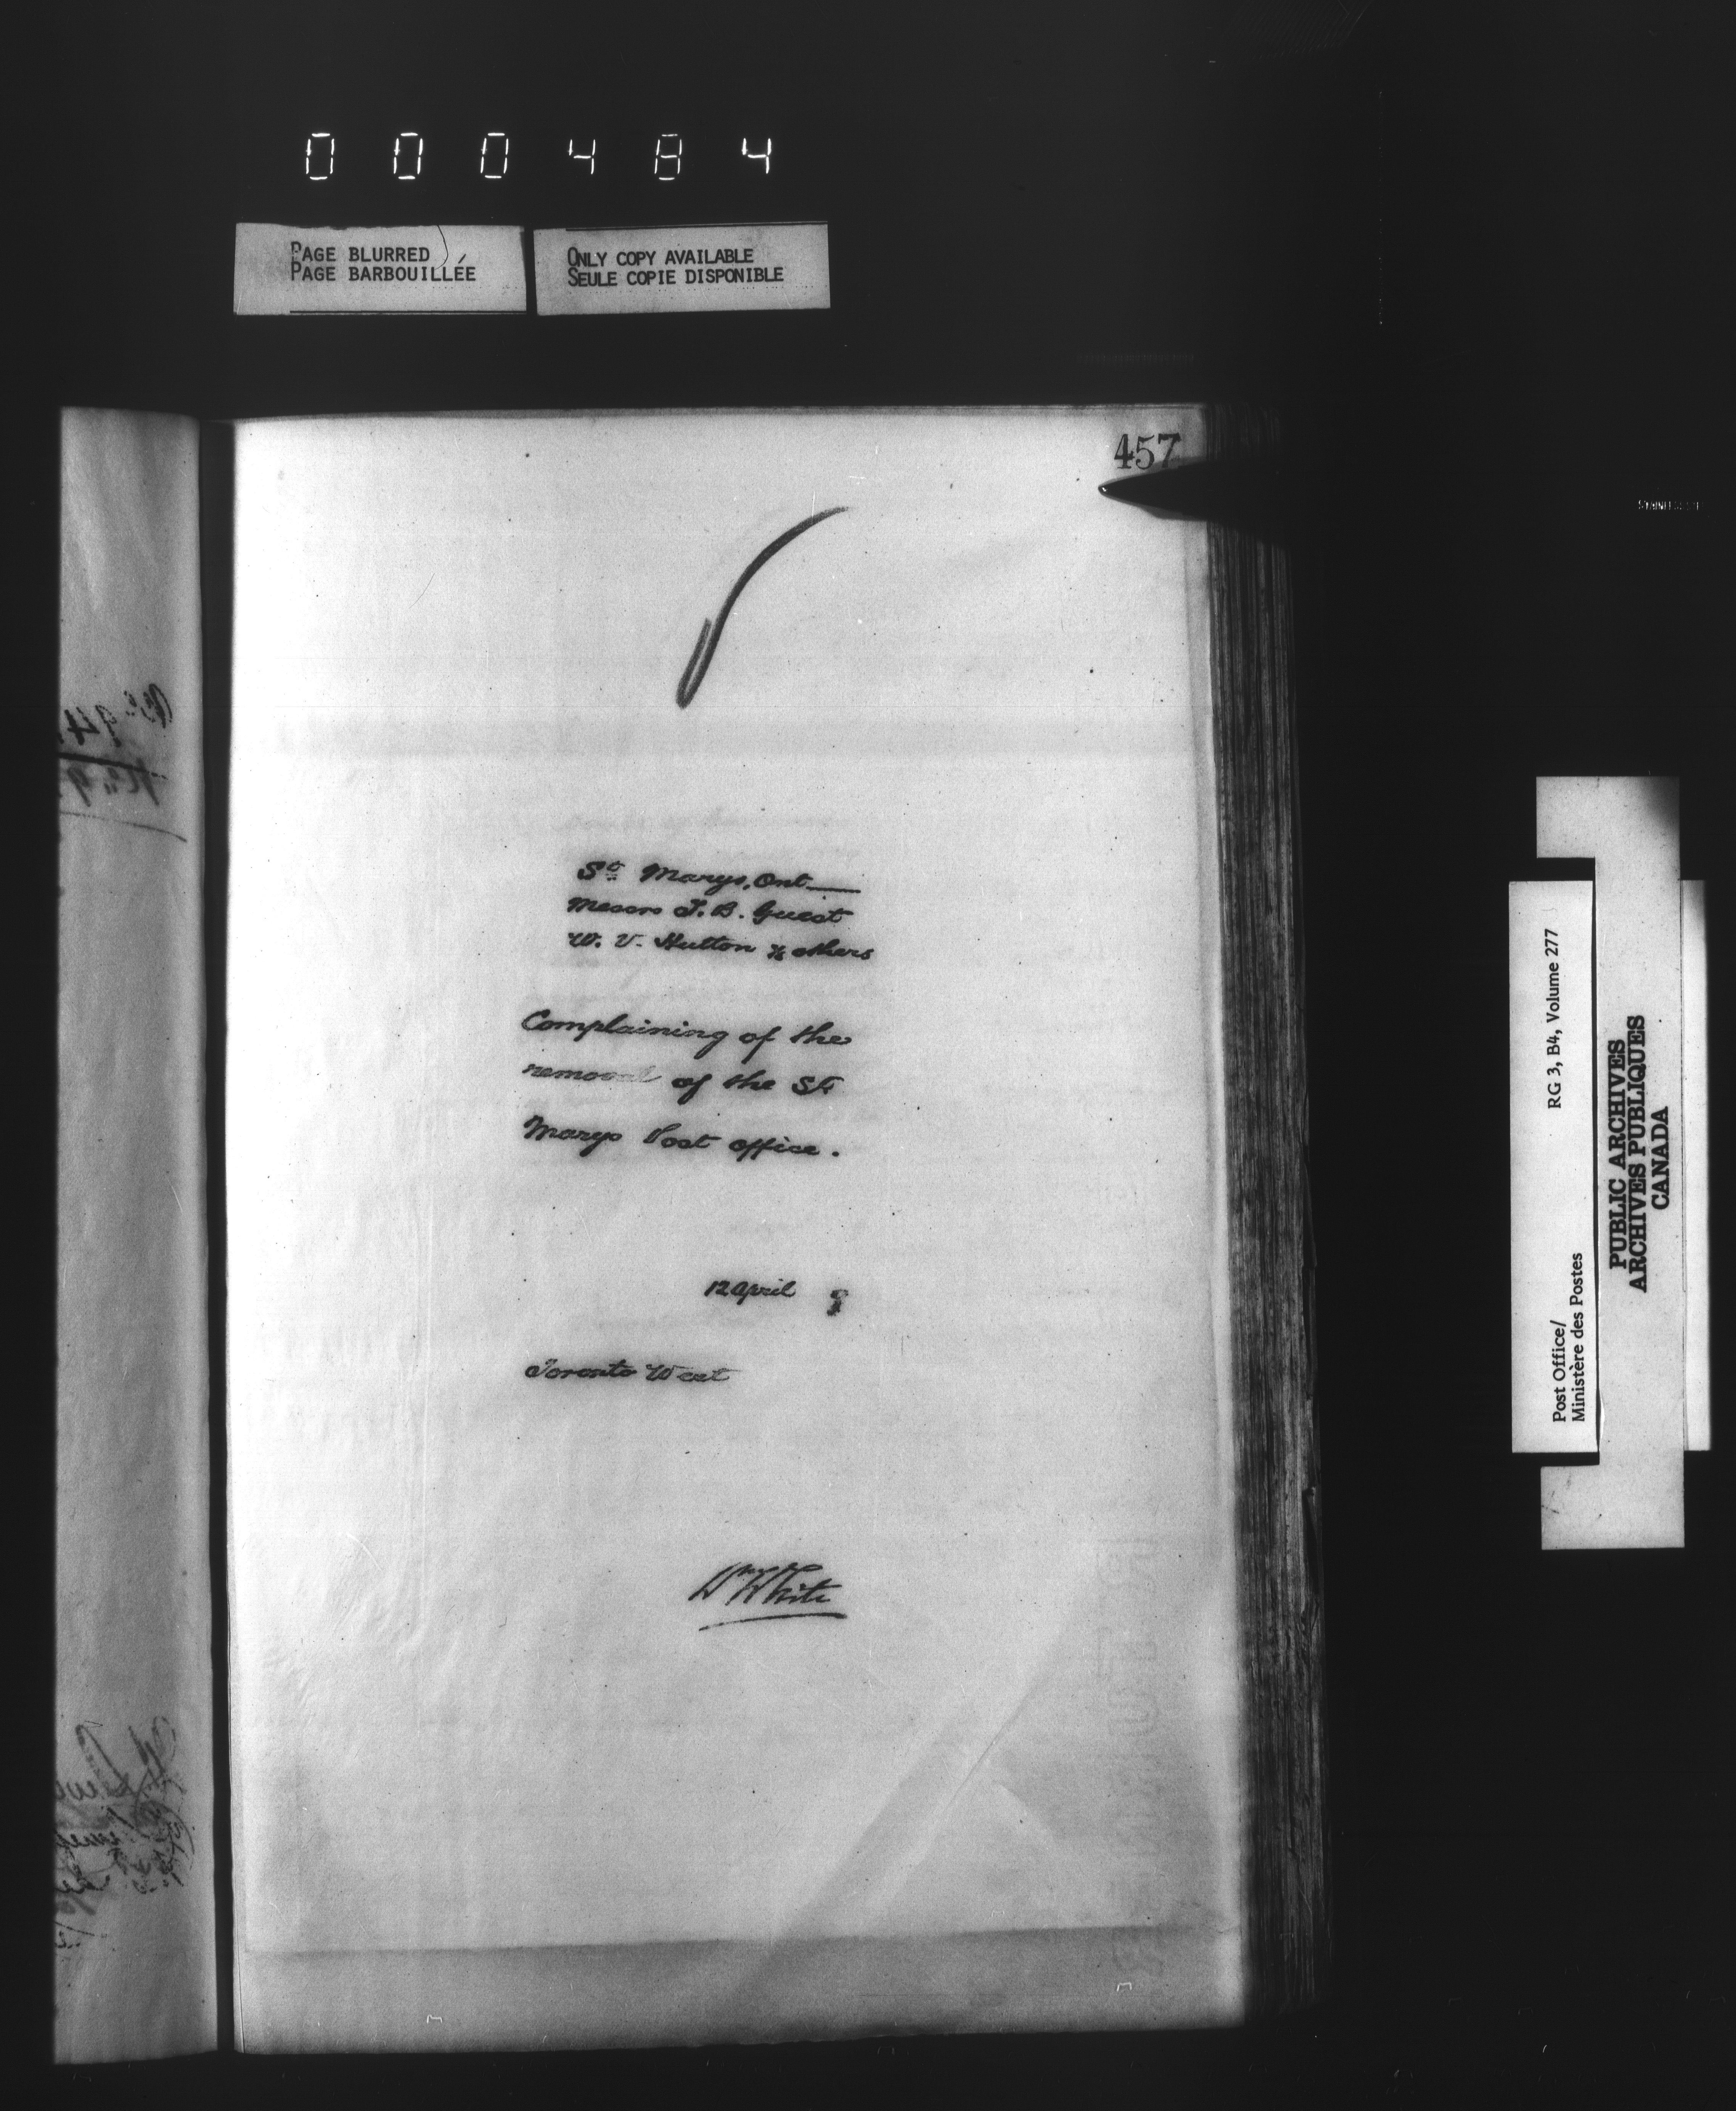 000484
PAGE BLURRED
PAGE BARBOUILLÉE
ONLY COPY AVAILABLE
SEULE COPIE DISPONIBLE
457
St Marys, Ont
Messrs T. B. Guest
W. V. Hutton & others
Complaining of the
removal of the St.
Marys Post office.
12 April 8
Toronto West
Wm White
Post Office/
Ministère des Postes
RG 3, B4, Volume 277
PUBLIC ARCHIVES
ARCHIVES PUBLIQUES
CANADA